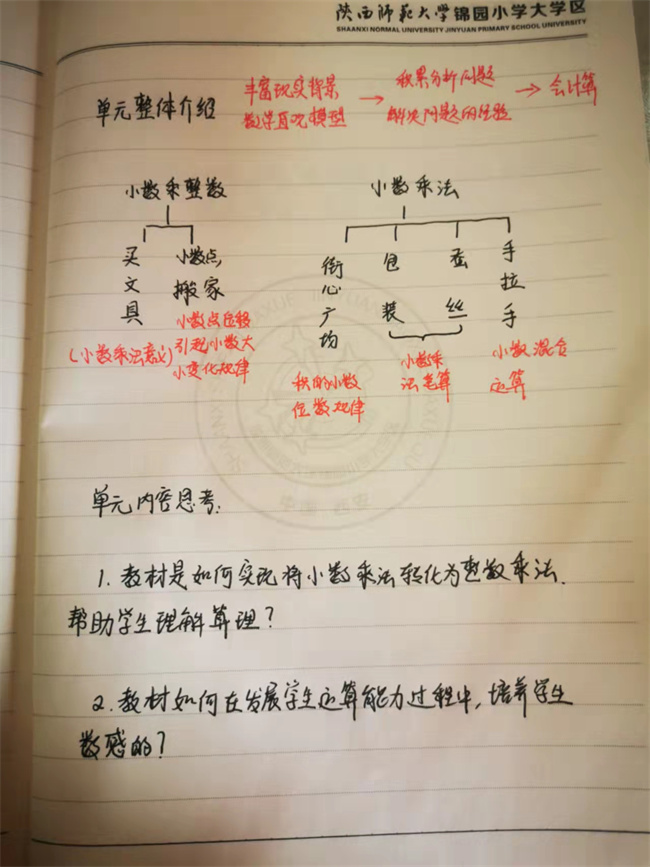 陕西师范大学锦园小学大学区
SHAANXI NORMAL UNIVERSITY JINYUAN PRIMARY SCHOOL UNIVERSITY
单元整体介绍
丰富现实背景
数学直观模型
→
积累分析问题
解决问题的经验
→ 会计算
小数乘整数
小数乘法
买文具
小数点搬家
街心广场
包装
蚕丝
手拉手
(小数乘法意义)
小数点位移
引起小数大
小变化规律
积的小数
位数规律
小数乘
法笔算
小数混合
运算
中国 西安
单元内容思考:
1. 教材是如何实现将小数乘法转化为整数乘法,
帮助学生理解算理?
2. 教材如何在发展学生运算能力过程中,培养学生
数感的?